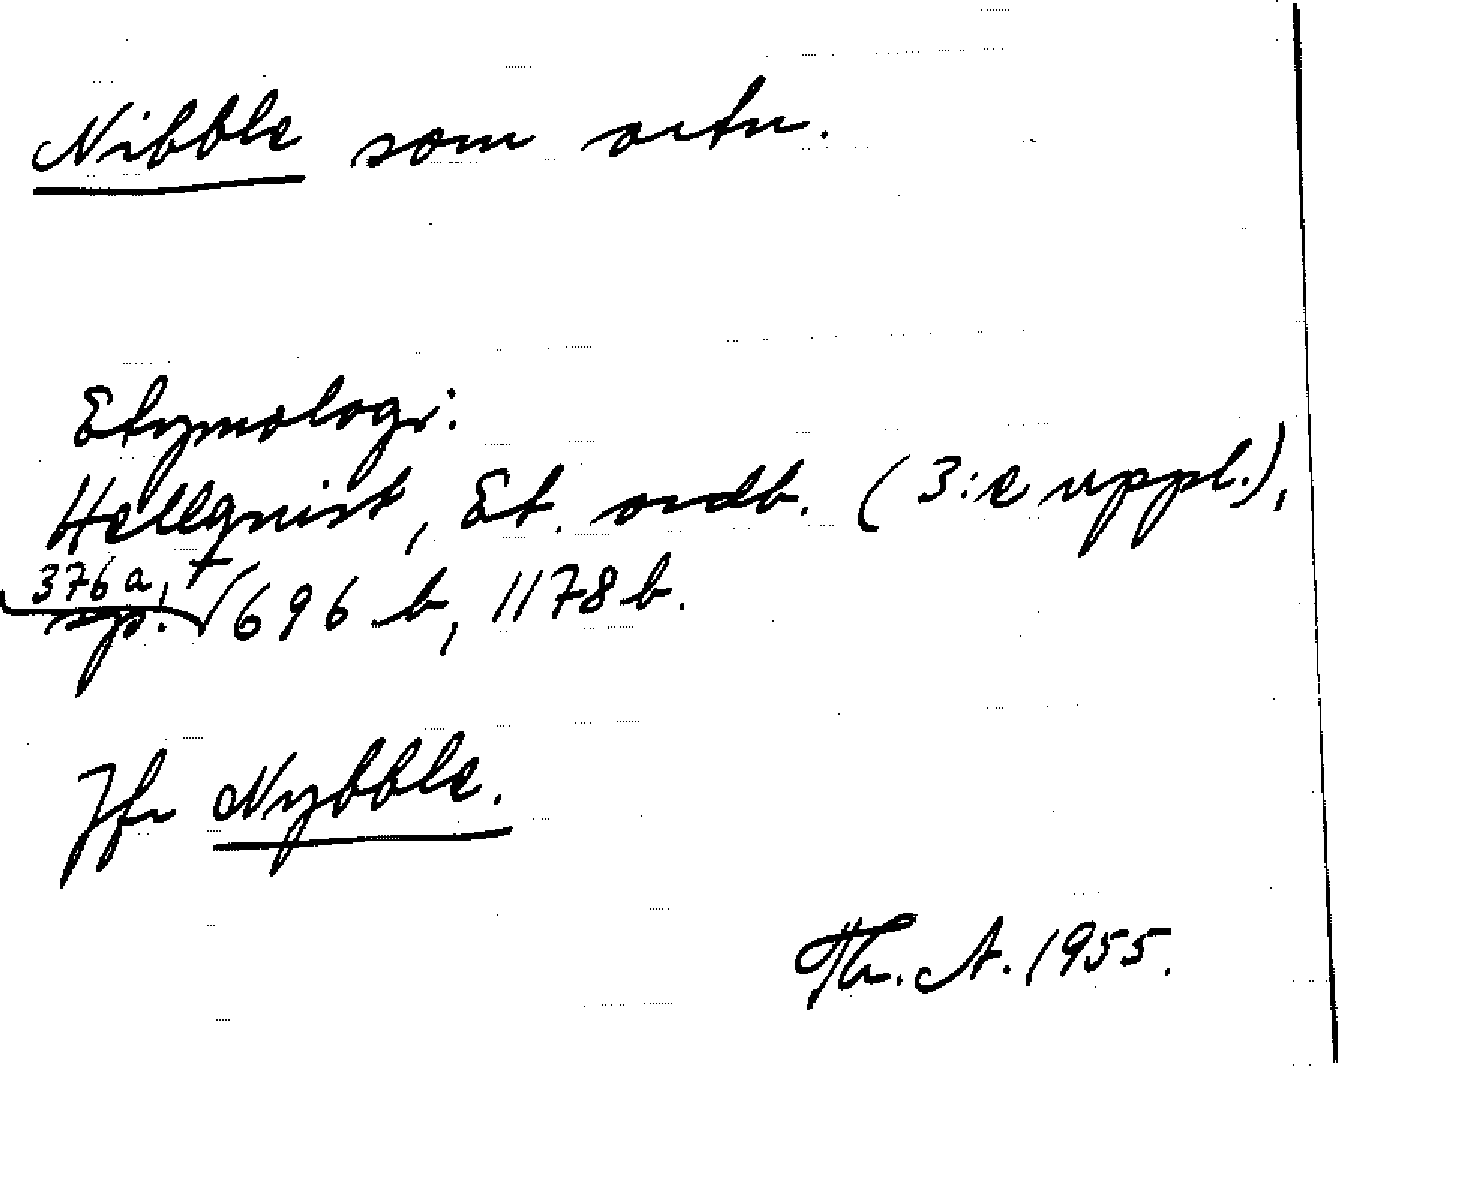 Nibble som ortn.
Etymologi:
Hellquist, Et. ordb. (3:e uppl.),
376 a, †
sp. 696 b, 1178 b.
Jfr Nybble.
Th. A. 1955.